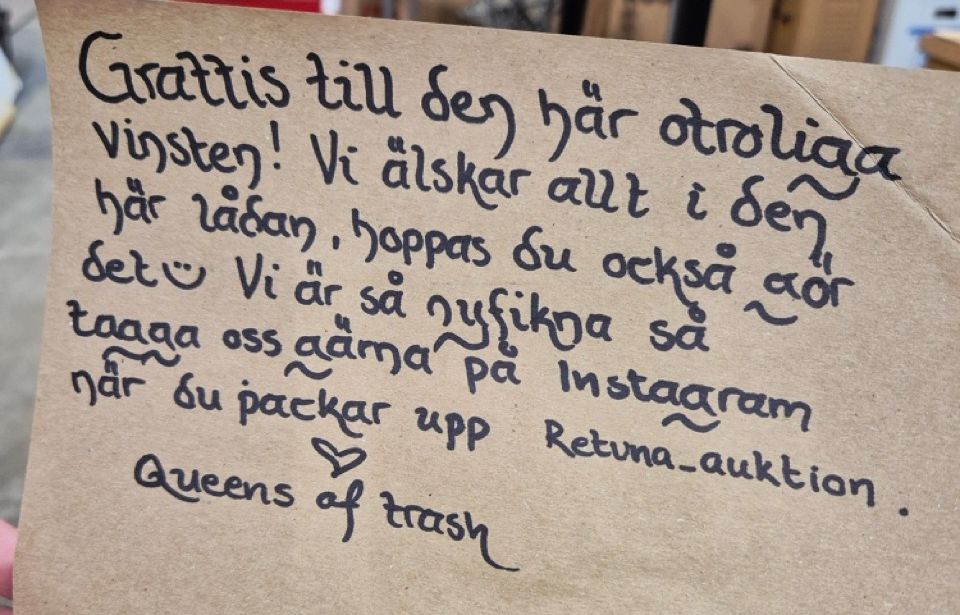 Grattis till den här otroliga
vinsten! Vi älskar allt i den
här lådan, hoppas du också gör
det☺ Vi är så nyfikna så
tagga oss gärna på Instagram
när du packar upp Retuna_auktion.
♡
Queens of trash